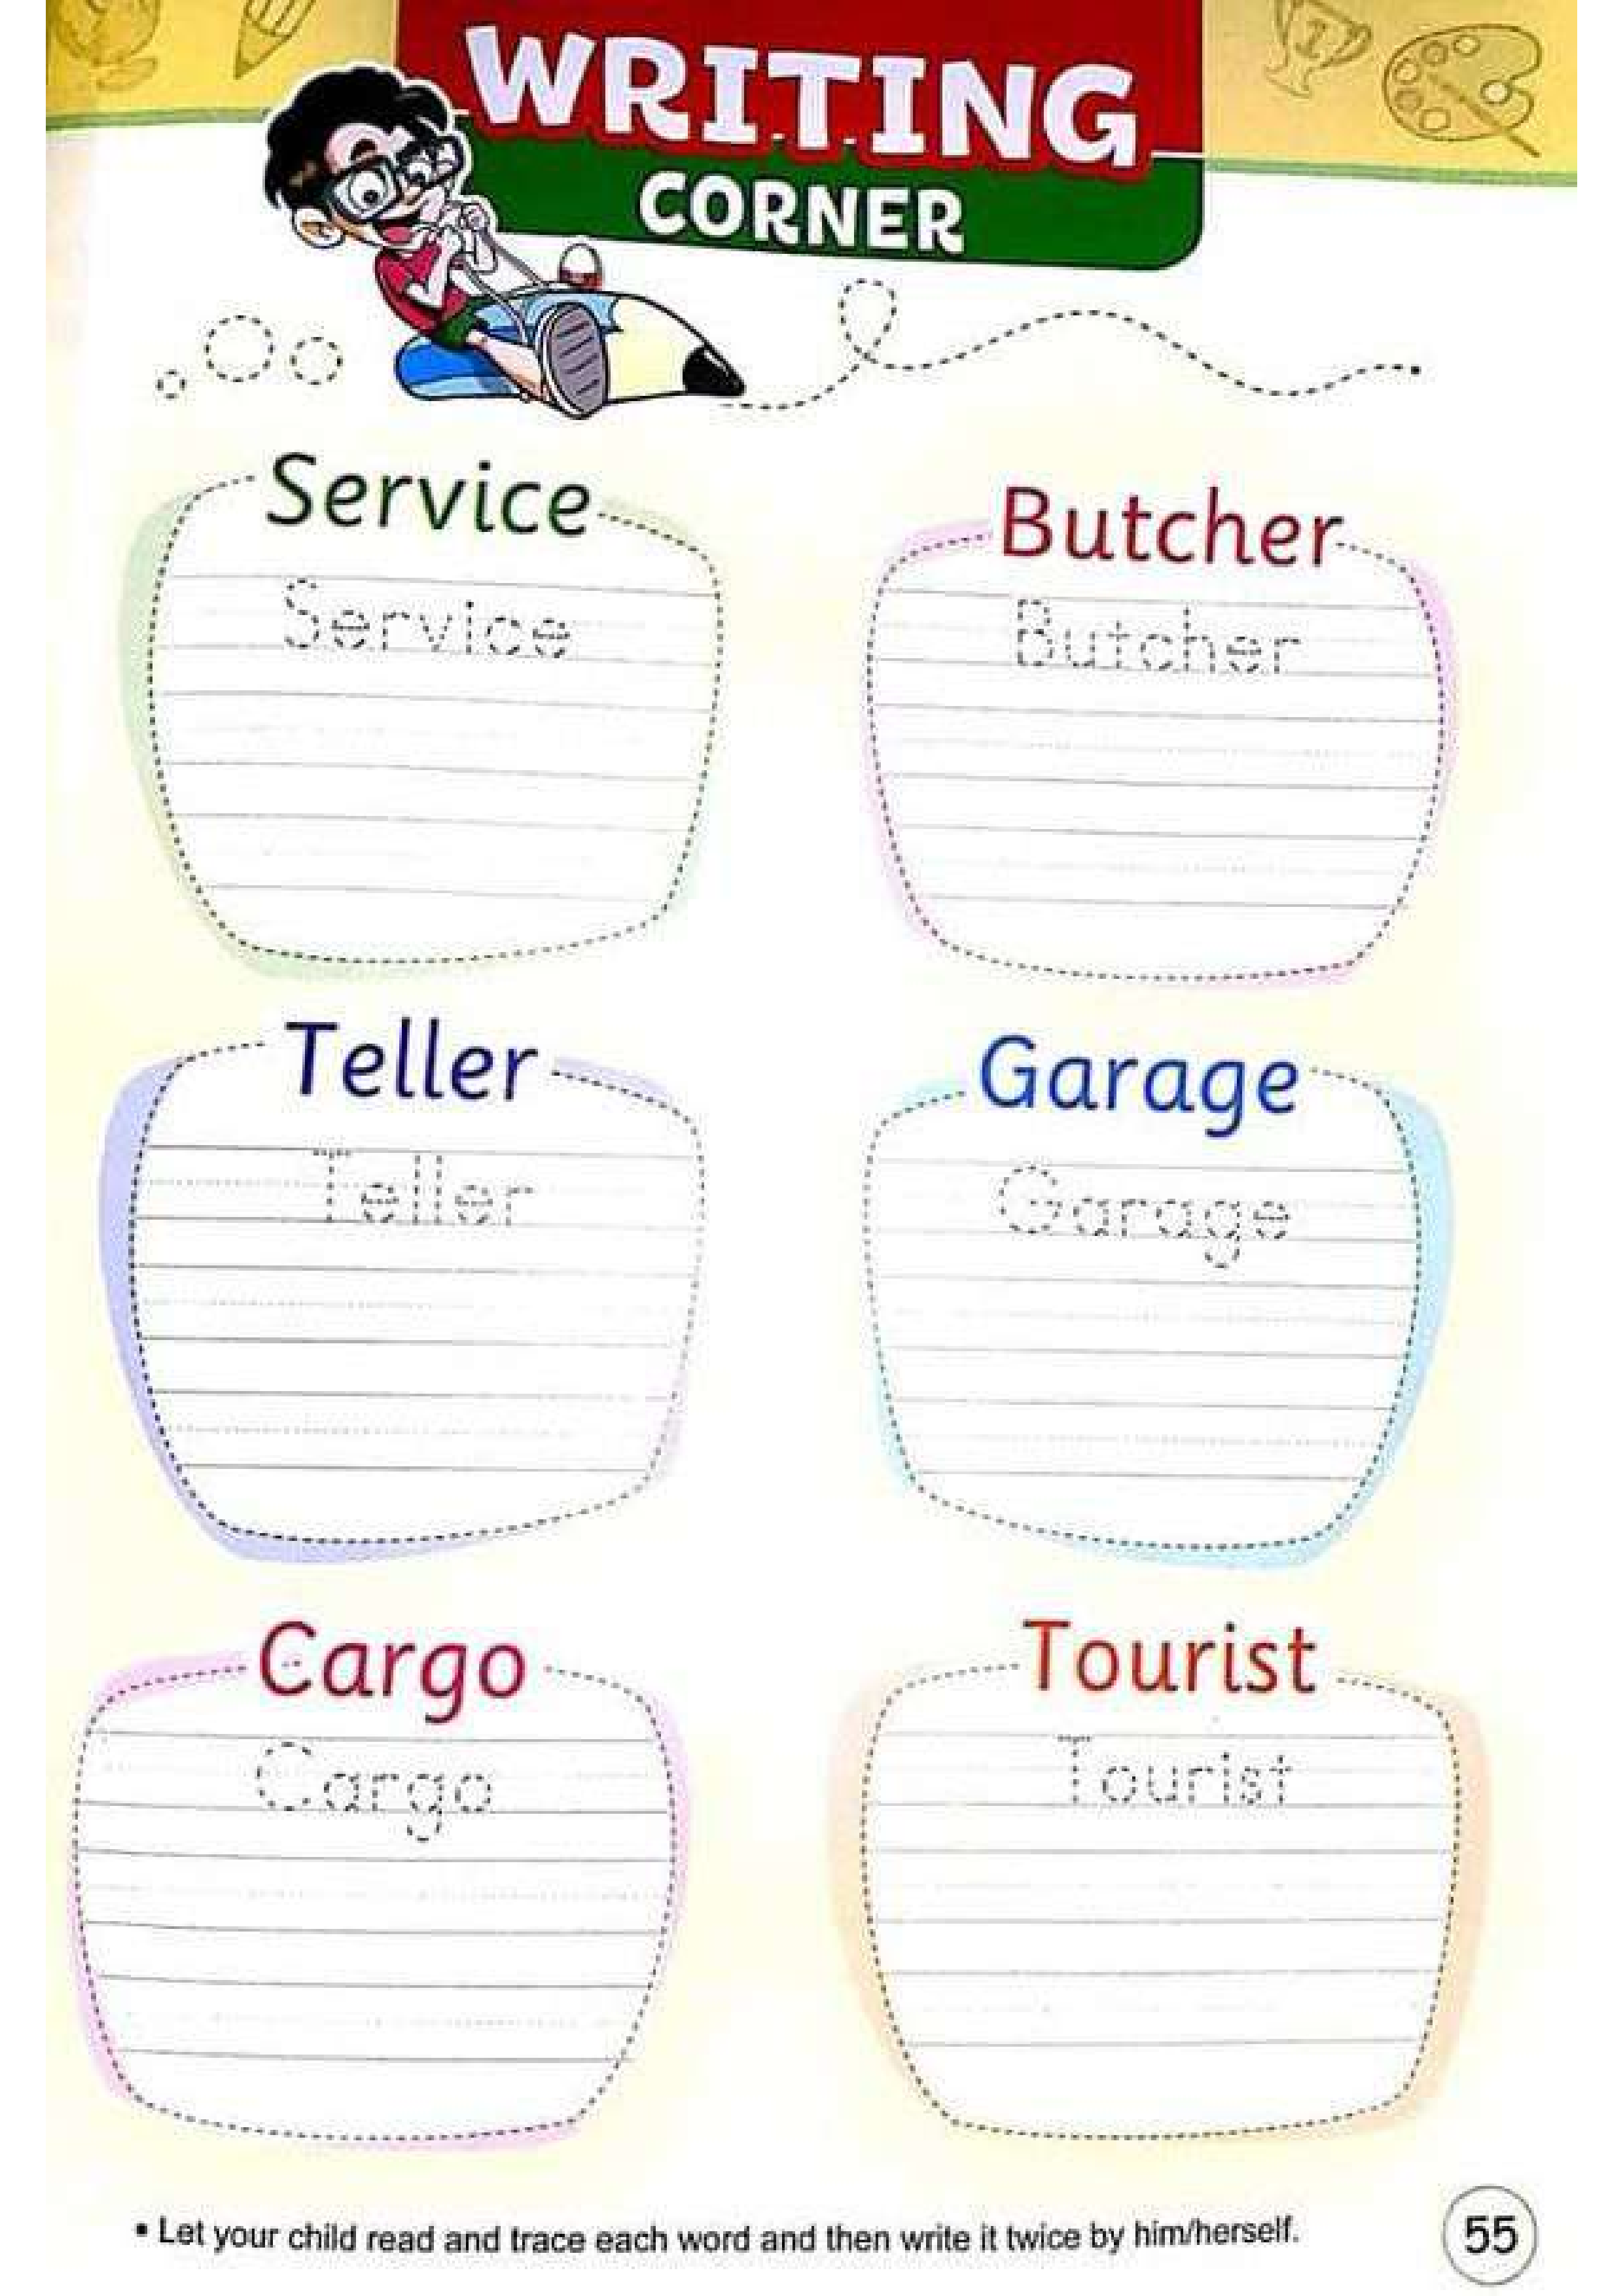 WRITING
CORNER
Service
Service
Butcher
Butcher
Teller
Teller
Garage
Garage
Cargo
Cargo
Tourist
Tourist
• Let your child read and trace each word and then write it twice by him/herself.
55